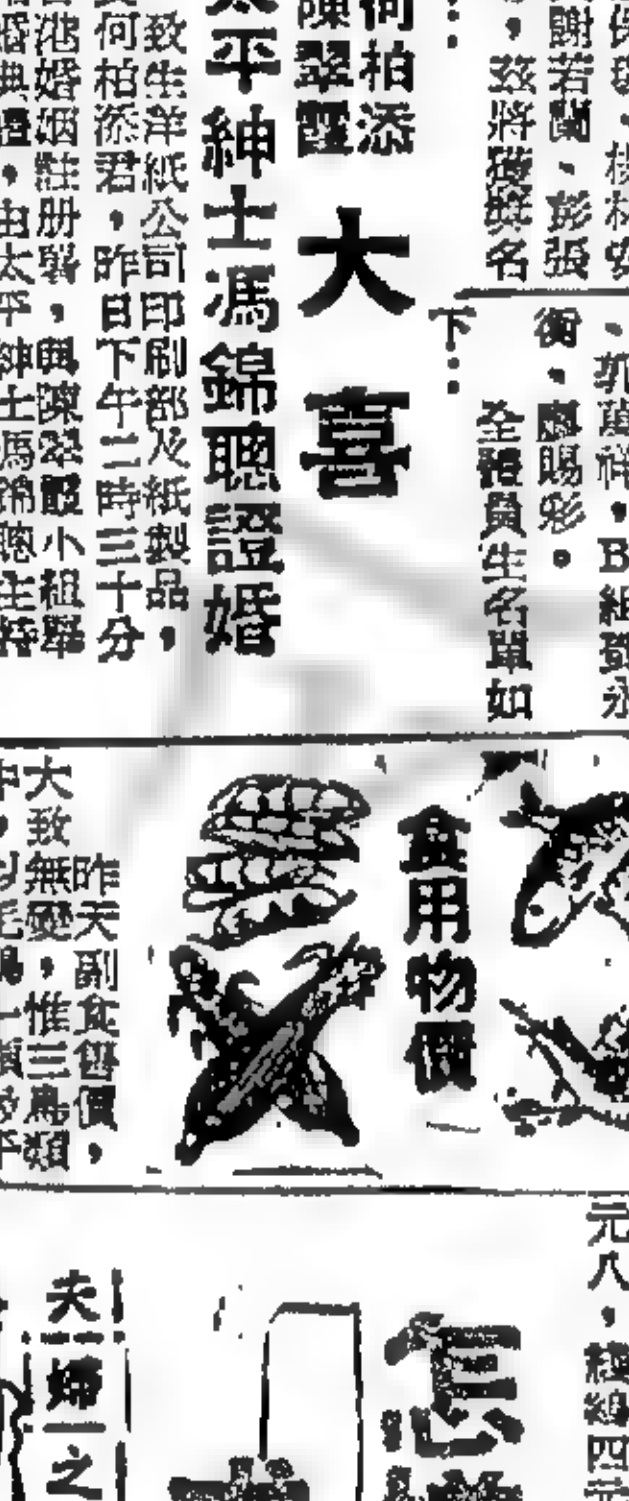 謝若蘭、彭張
，茲將獲獎名
、郭萬祥，B組鄧永
衡，盧賜彩。
全體員生名單如
下：
何柏添
陳翠霞
大喜
太平紳士馮錦聰證婚
致生洋紙公司印刷部及紙製品，
何柏添君，昨日下午二時三十分
港婚姻註册署，與陳翠霞小姐舉
婚典禮，由太平紳士馮錦聰主持
食用物價
昨天副食售價，
大致無變，惟三鳥類
元八，
四元
怎
夫婦之